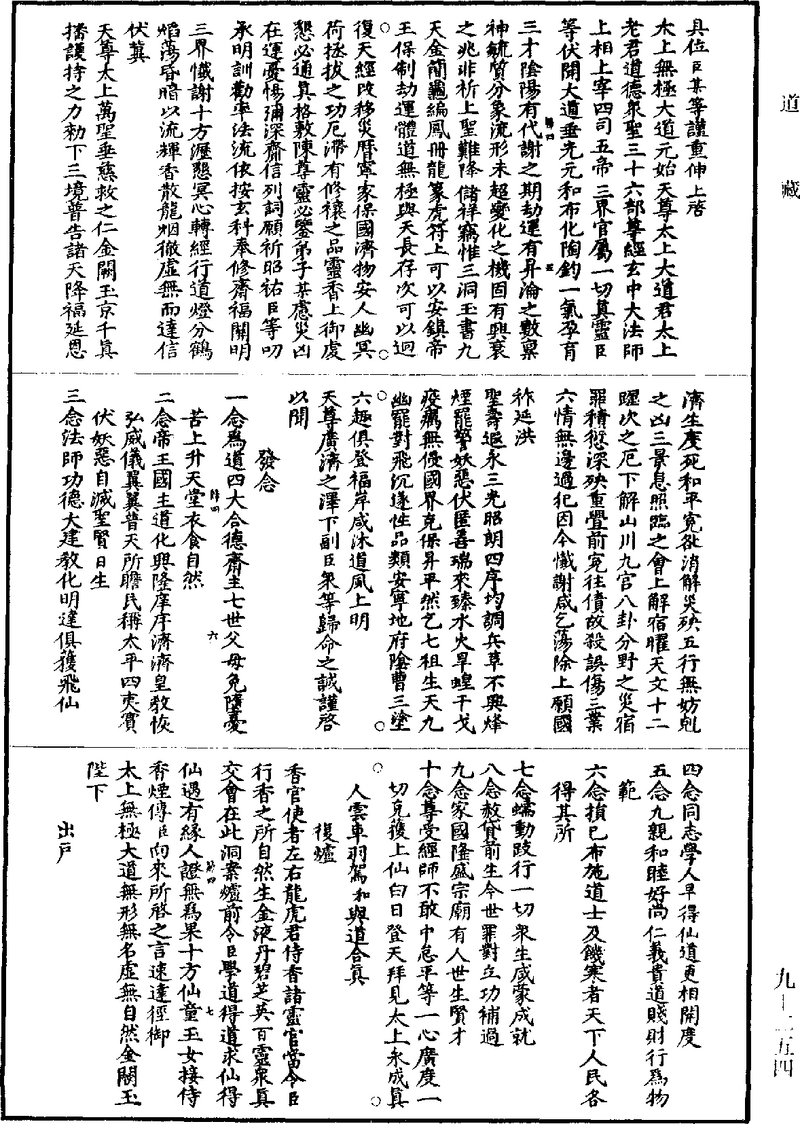 道藏
具位臣某等謹重伸上啓
太上無極大道元始天尊太上大道君太上
老君道德衆聖三十六部尊經玄中大法師
上相上宰四司五帝三界官屬一切真靈臣
等伏聞大道垂光元和布化陶鈞一氣孕育
三才陰陽有代謝之期劫運有昇淪之數稟
神毓質分象流形未超變化之機固有興衰
之兆非祈上聖難降儲祥竊惟三洞玉書九
天金簡龜編鳳冊龍篆虎符上可以安鎮帝
王保制劫運體道無極與天長存次可以迴
復天經改移災曆寧家保國濟物安人幽冥
荷拯拔之功厄滯有修禳之品靈香上御處
懇必通真格敷陳尊靈必鑒弟子某慮災凶
在運憂惕彌深齋信列詞願祈昭祐臣等叨
承明訓勸率法流依按玄科奉修齋福關明
三界懺謝十方瀝懇冥心轉經行道燈分鶴
焰蕩昏暗以流輝香散龍烟徹虛無而達信
伏冀
天尊太上萬聖垂慈救之仁金闕玉京千真
播護持之力勑下三境普告諸天降福延恩
濟生度死和平寃敓消解災殃五行無妨剋
之凶三景息照臨之會上解宿曜天文十二
躔次之厄下解山川九宮八卦分野之災宿
罪積愆深殃重舋前寃往債故殺誤傷三業
六情無邊過犯因今懺謝咸乞蕩除上願國
祚延洪
聖壽遐永三光昭朗四序均調兵革不興烽
煙罷警妖惡伏匿善瑞來臻水火旱蝗干戈
疫癘無侵國界克保昇平然乞七祖生天九
幽罷對飛沉遂性品類安寧地府陰曹三塗
六趣俱登福岸咸沐道風上明
天尊廣濟之澤下副臣衆等歸命之誠謹啓
以聞
發念
一念爲道四大合德齋主七世父母免離憂
苦上升天堂衣食自然
二念帝王國主道化興隆庠序濟濟皇教恢
弘威儀翼翼普天所瞻民稱太平四夷賓
伏妖惡自滅聖賢日生
三念法師功德大建教化明達俱獲飛仙
四念同志學人早得仙道更相開度
五念九親和睦好尚仁義貴道賤財行爲物
範
六念損己布施道士及饑寒者天下人民各
得其所
七念蠕動跂行一切衆生咸蒙成就
八念赦貸前生今世罪對立功補過
九念家國隆盛宗廟有人世生賢才
十念尊受經師不敢中怠平等一心廣度一
切克獲上仙白日登天拜見太上永成真
人雲車羽駕和與道合真
復爐
香官使者左右龍虎君侍香諸靈官當令臣
行香之所自然生金液丹碧芝英百靈衆真
交會在此洞案爐前令臣學道得道求仙得
仙遇有緣人證無爲果十方仙童玉女接侍
香煙傳臣向來所啓之言速達徑御
太上無極大道無形無名虛無自然金闕玉
陛下
出戶
九—二五四